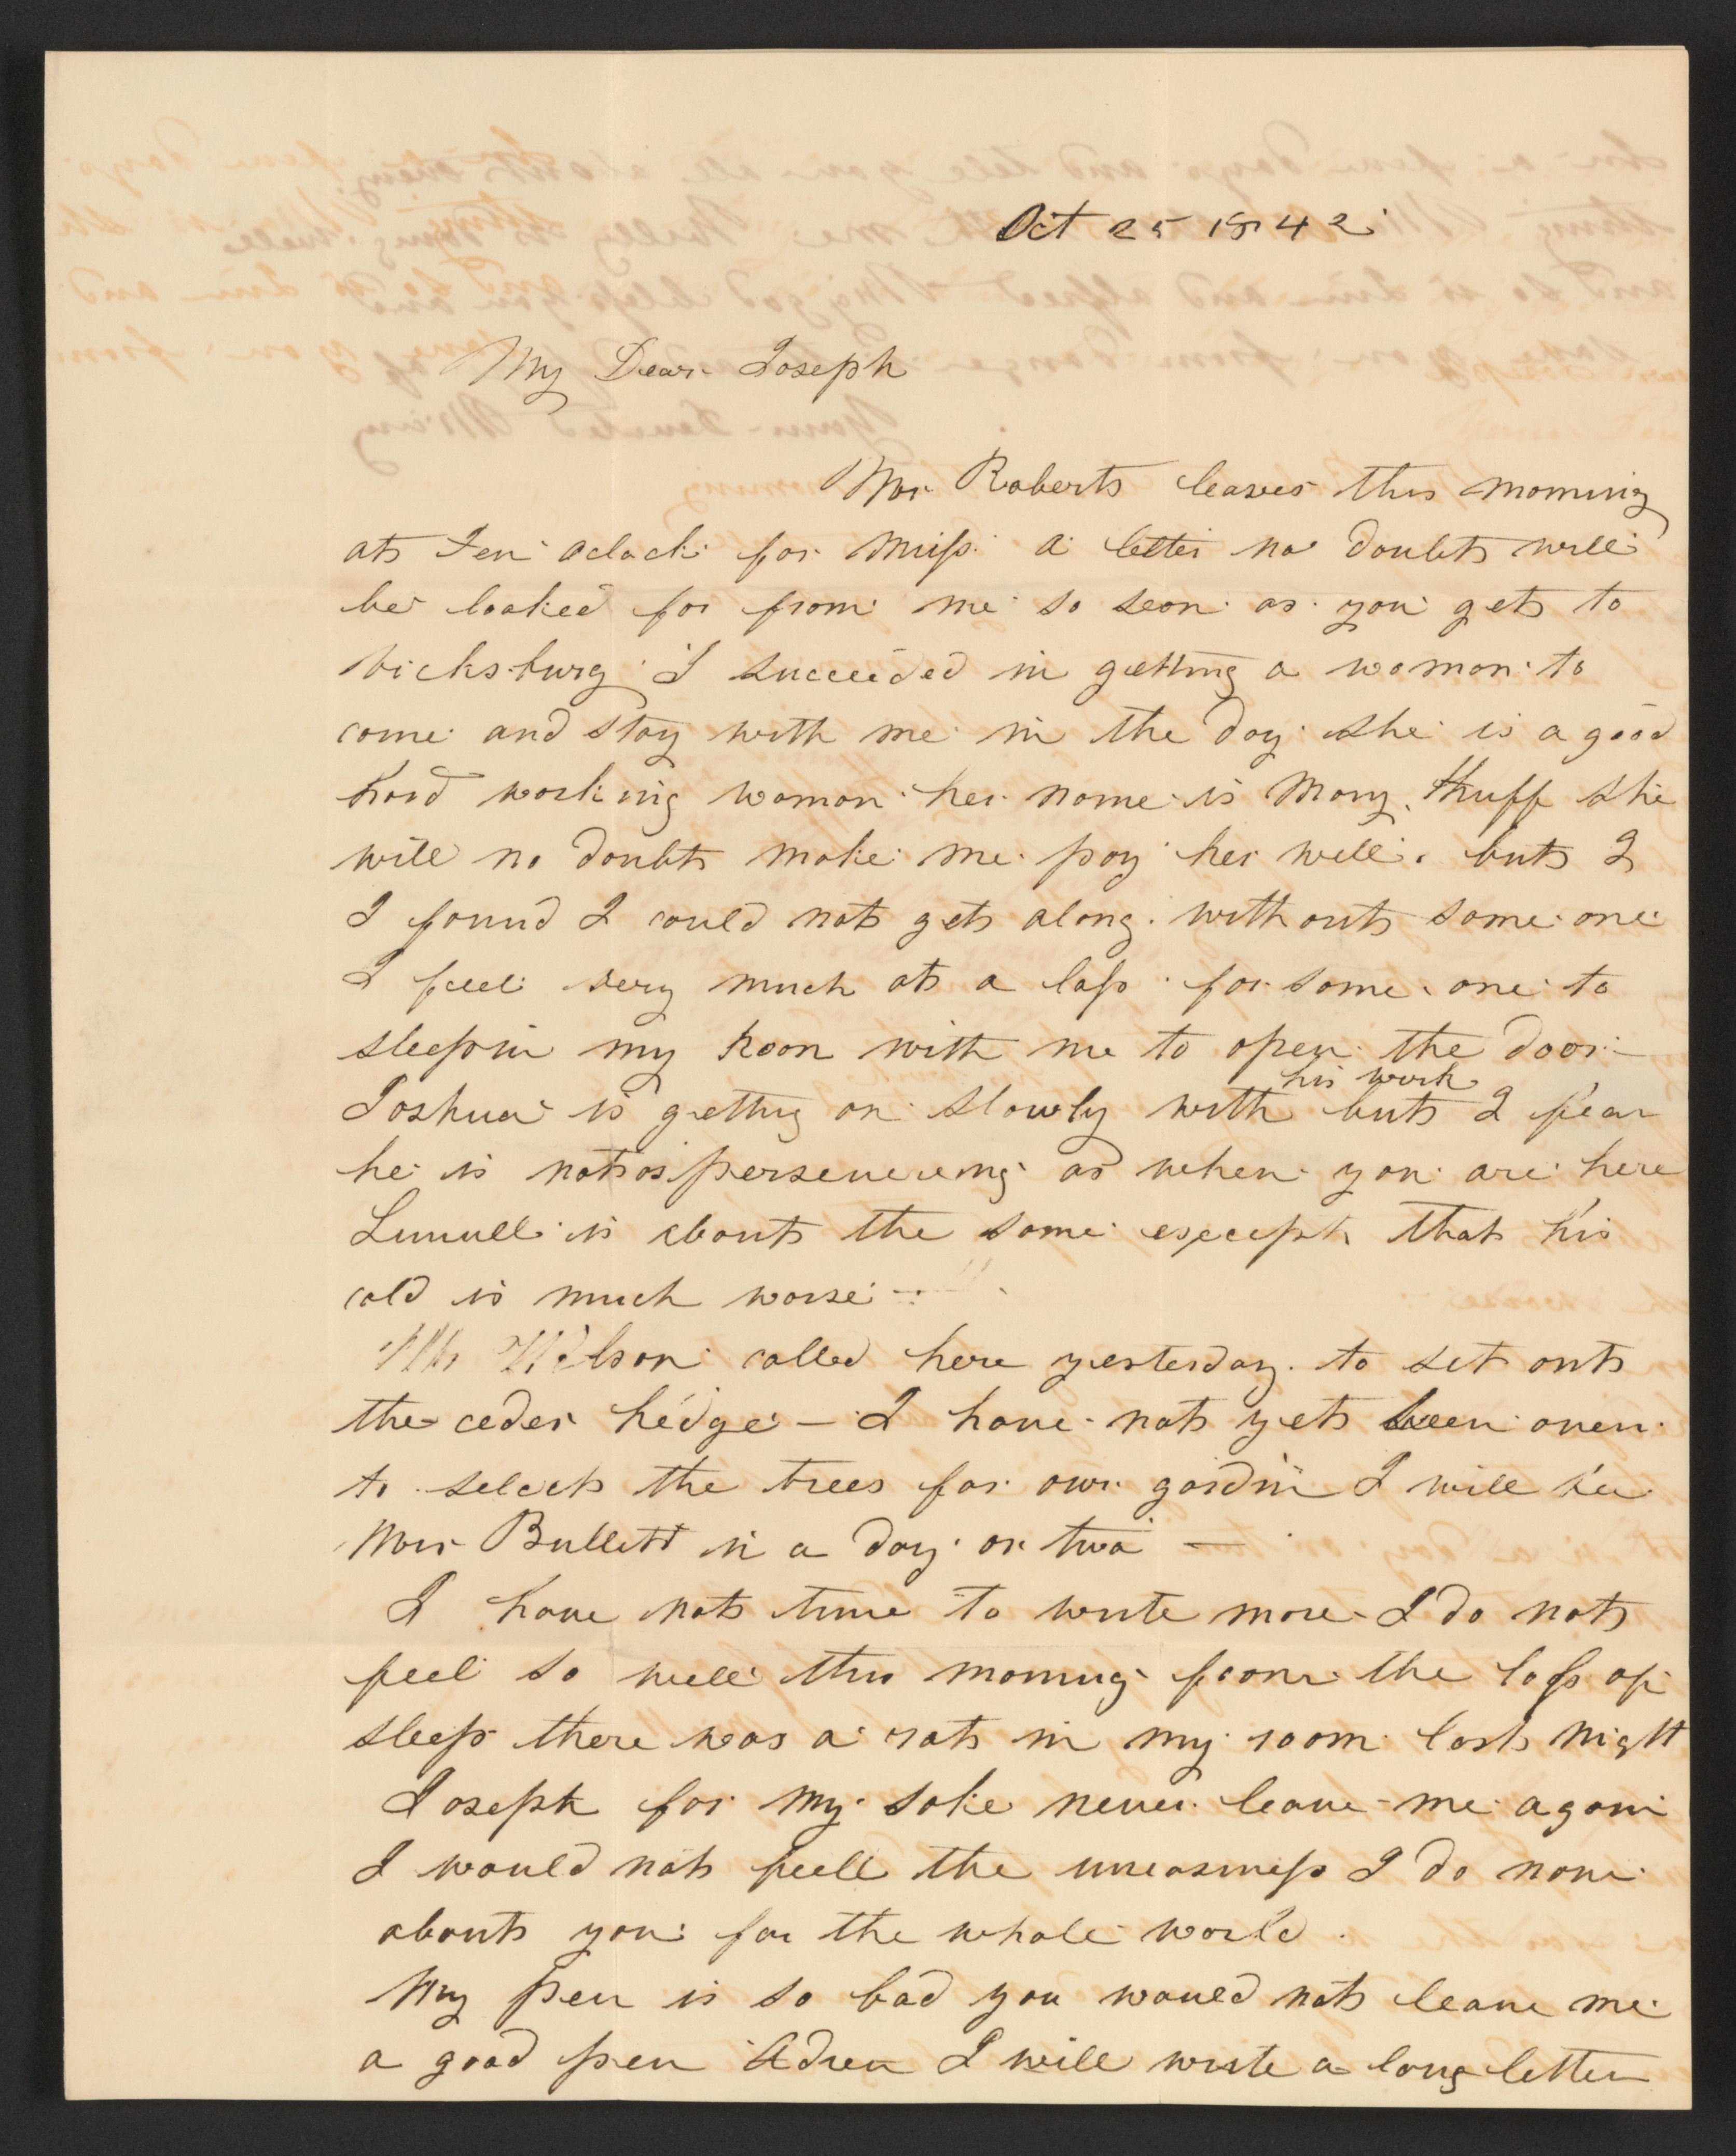 Oct 25 1842
My Dear Joseph
Mr Roberts leaves this morning
at Ten oclock for Miss. a letter no doubt will
be looked for from me so soon as you get to
Vicksburg I succeeded in getting a woman to
come and stay with me in the day she is a good
hard working woman her name is Mary Huff she
will no doubt make me pay her well. but I
I found I could not get along without some one
I feel very much at a loss for some one to
sleep in my Room with me to open the door -
his work
Joshua is getting on slowly with but I fear
he is not as persevereing as when you are here
Lumell is about the same except that his
cold is much worse
Mr Wilson called here yesterday to set out
the ceder hedge - I have not yet been over
to select the trees for our gardin I will see
Mrs Bullett in a day or two -
I have not time to write more - I do not
feel so well this morning from the loss of
sleep there was a rat in my room last night
Joseph for my sake never leave me again
I would not feell the uneasiness I do now
about you for the whole world.
My pen is so bad you would not leave me
a good pen Adieu I will write a long letter